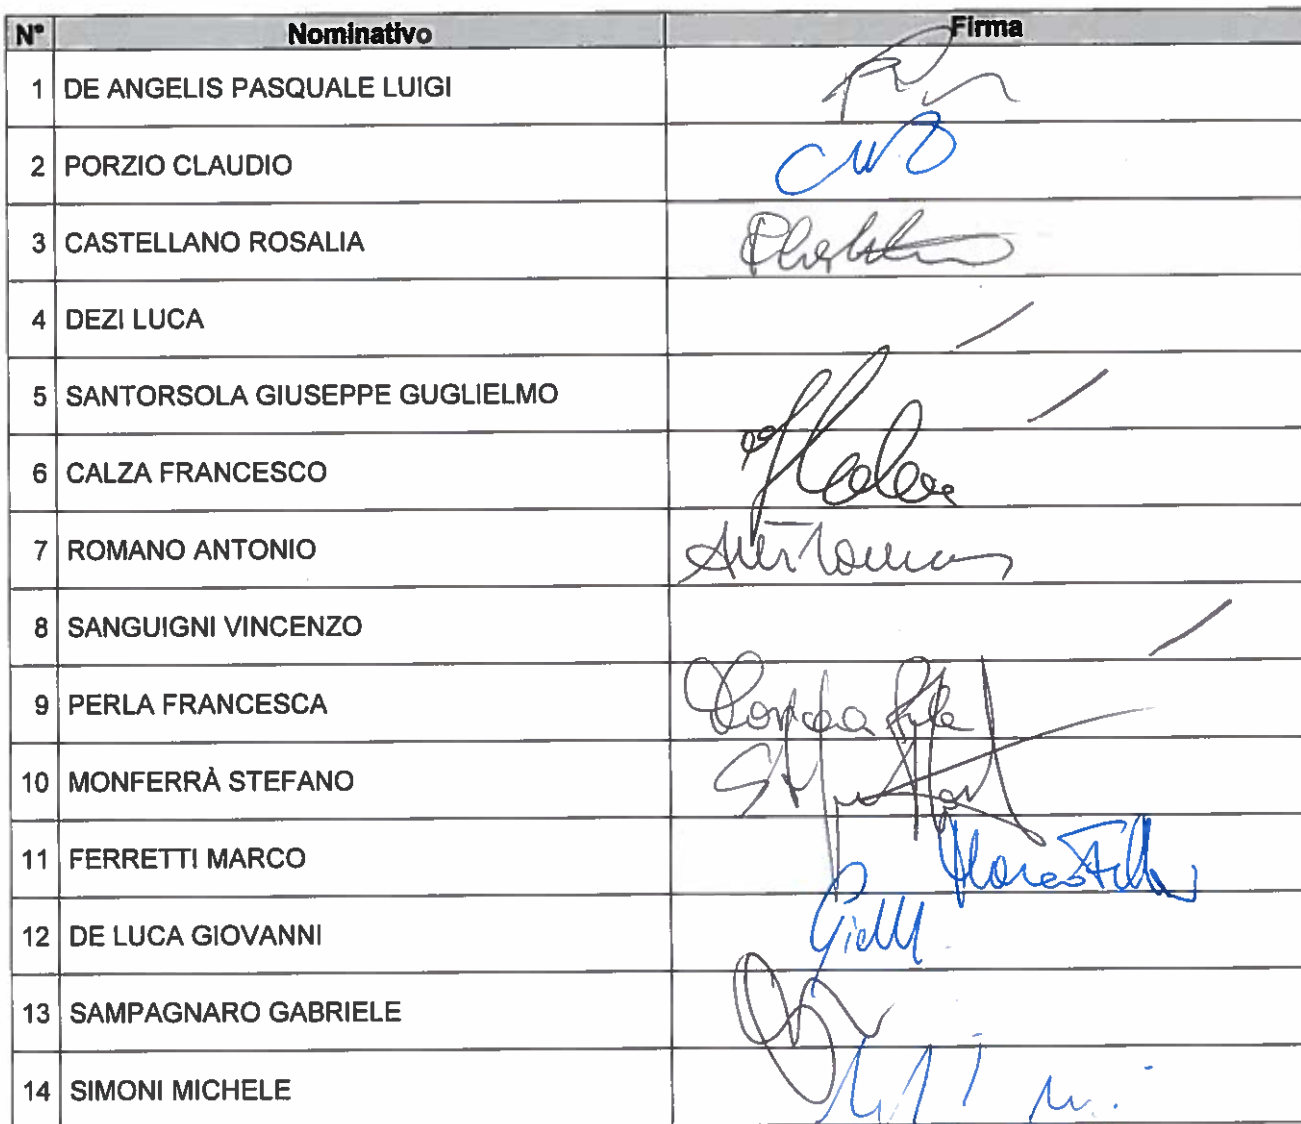 N° Nominativo Firma
1 DE ANGELIS PASQUALE LUIGI
2 PORZIO CLAUDIO
3 CASTELLANO ROSALIA
4 DEZI LUCA
5 SANTORSOLA GIUSEPPE GUGLIELMO
6 CALZA FRANCESCO
7 ROMANO ANTONIO
8 SANGUIGNI VINCENZO
9 PERLA FRANCESCA
10 MONFERRÀ STEFANO
11 FERRETTI MARCO
12 DE LUCA GIOVANNI
13 SAMPAGNARO GABRIELE
14 SIMONI MICHELE